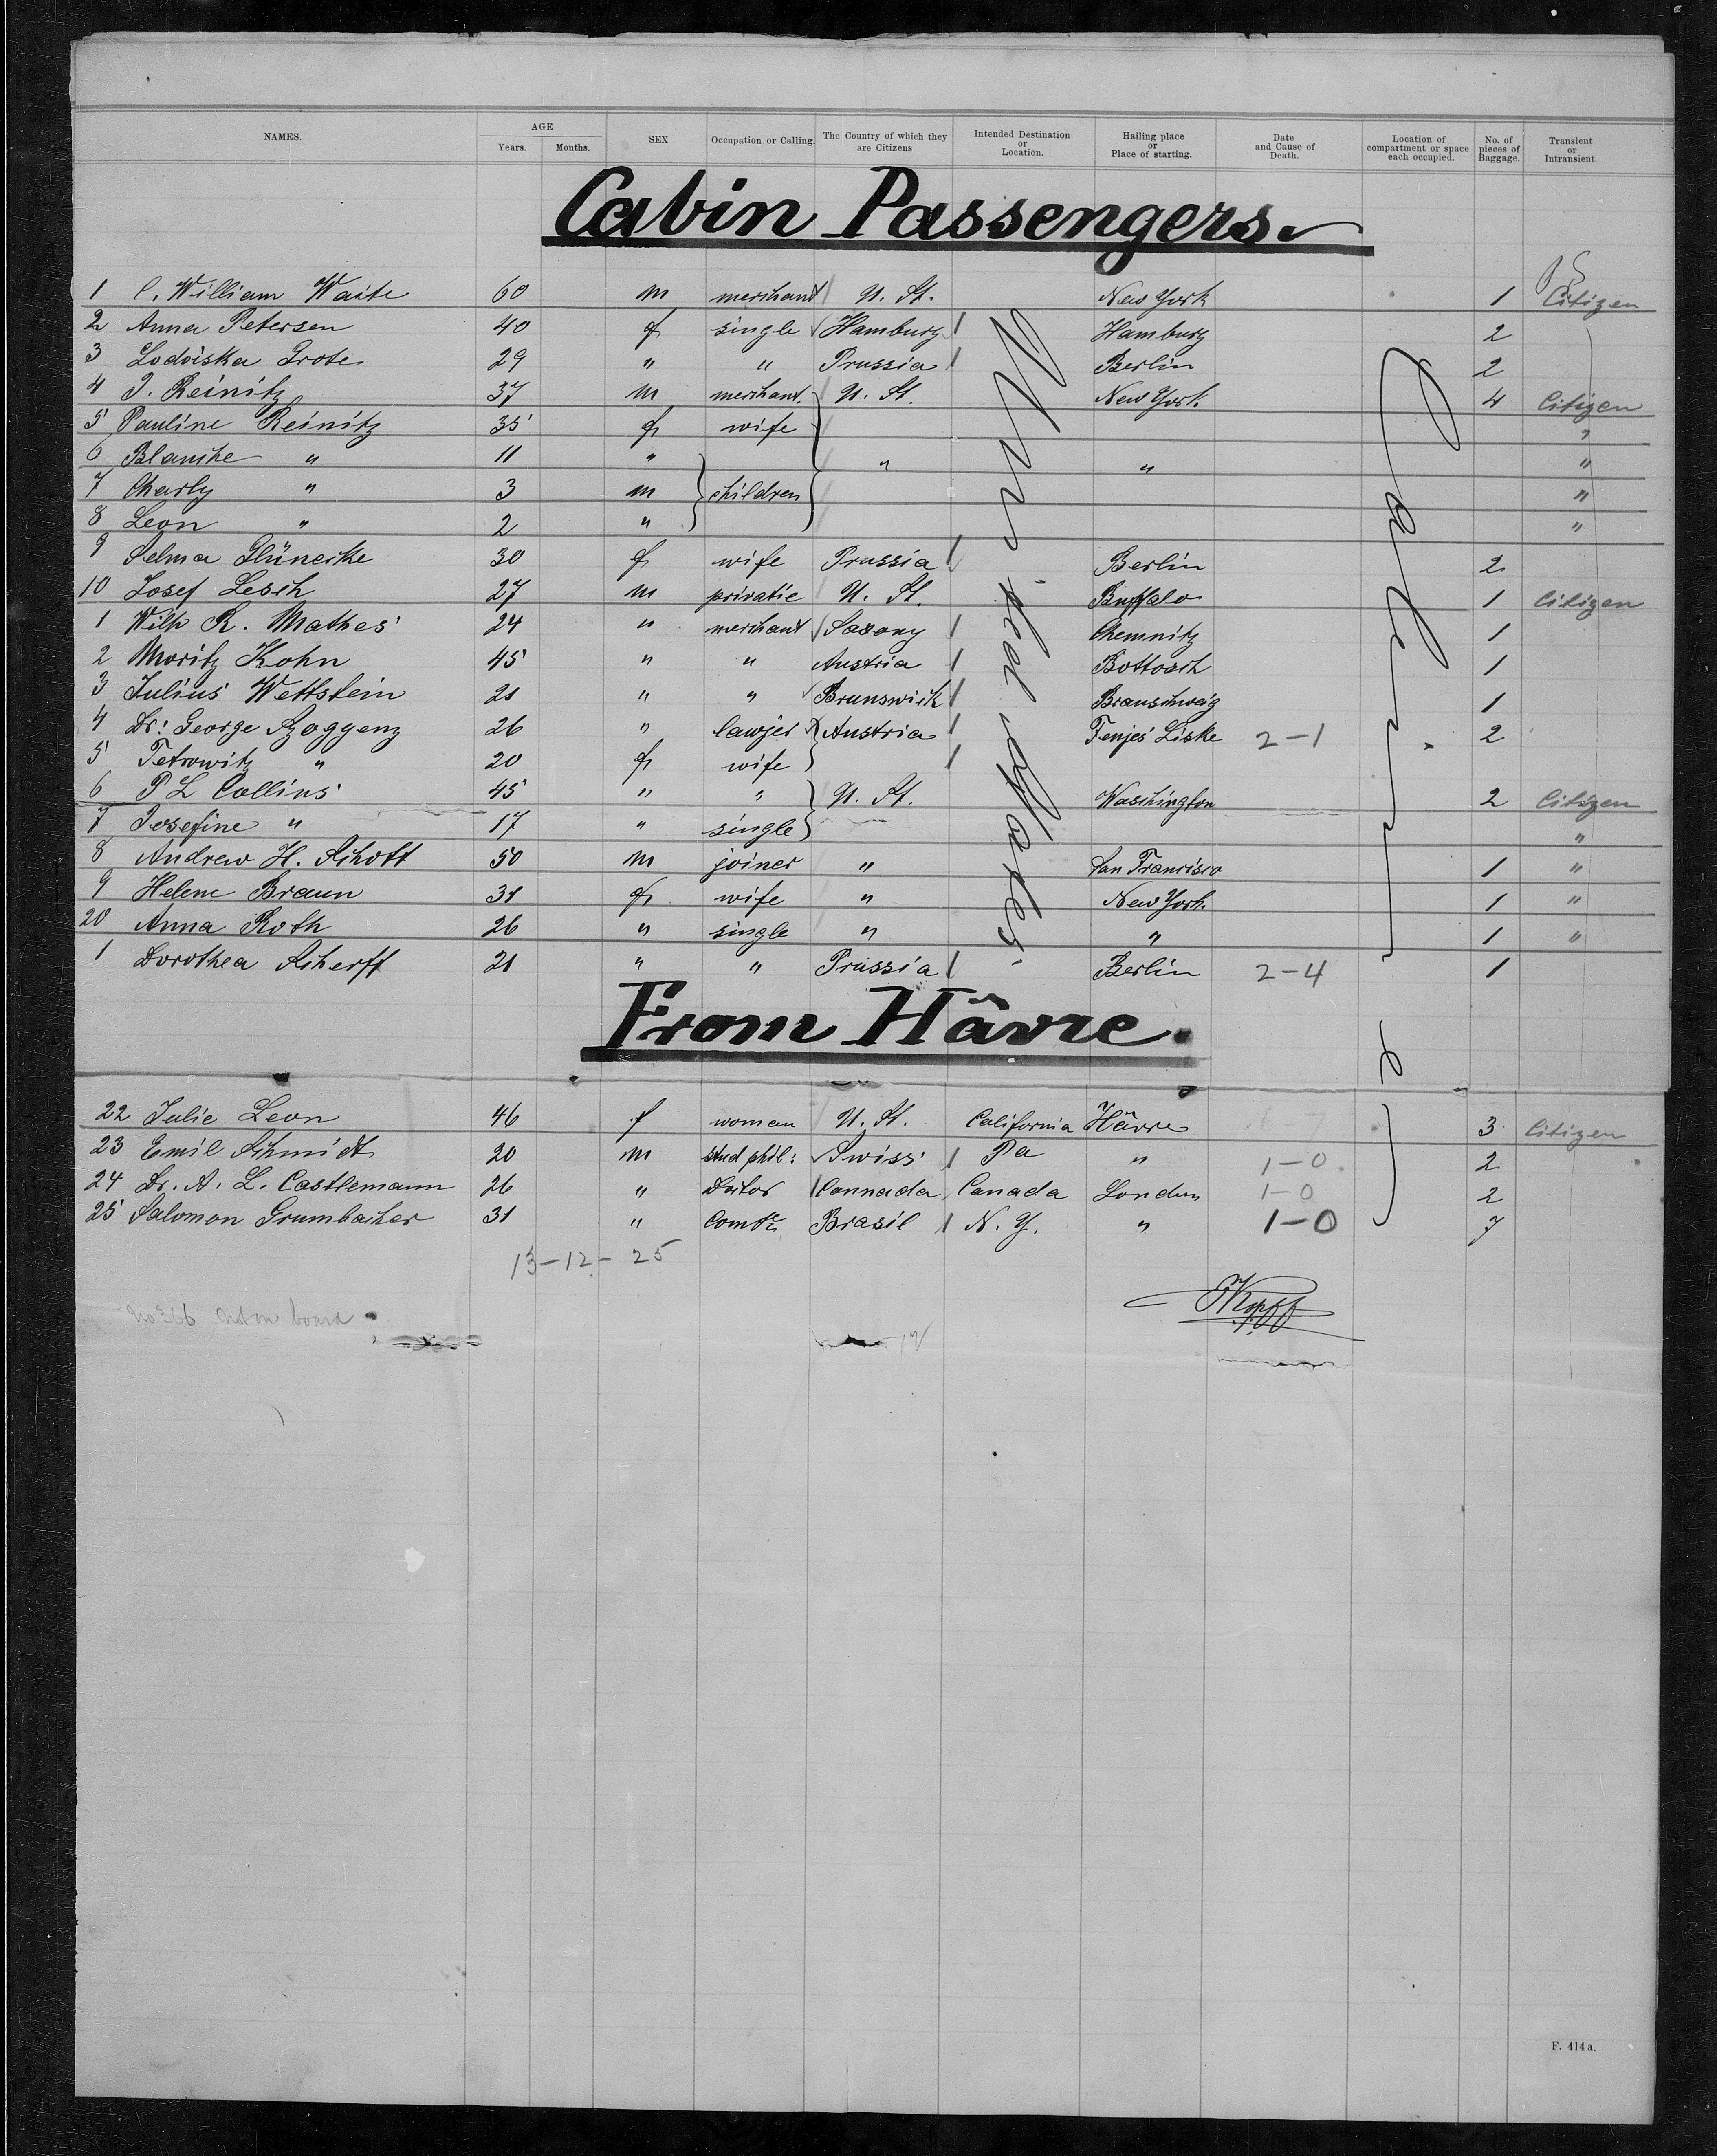 NAMES. AGE Years. Months. SEX Occupation or Calling. The Country of which they are Citizens Intended Destination or Location. Hailing place or Place of starting. Date and Cause of Death. Location of compartment or space each occupied. No. of pieces of Baggage. Transient or Intransient.
Cabin Passengers
1 C. William Waite 60 m merchant U. St. New York 1 Citizen
2 Anna Petersen 40 f single Hamburg Hamburg 2
3 Lodoiska Grote 29 " " Prussia Berlin 2
4 J. Reinitz 37 m merchant. U. St. New York 4 Citizen
5 Pauline Reinitz 35 f wife "
6 Blanche " 11 " " " "
7 Charly " 3 m children "
8 Leon " 2 " "
9 Selma Glünecke 30 f wife Prussia Berlin 2
10 Josef Lesch 27 m privatie U. St. Buffalo 1 Citizen
1 Wilh R. Mathes 24 " merchant Saxony Chemnitz 1
2 Moritz Kohn 45 " " Austria Bottosch 1
3 Julius Wettstein 21 " " Brunswick Braunschweig 1
4 Dr: George 26 " lawjer Austria Fenjes Liske 2-1 2
5 Petrowitz " 20 f wife
6 P L Collins 45 " " U. St. Waschington 2 Citizen
7 Josefine " 17 " single "
8 Andrew H. Schott 50 m joiner " San Francisco 1 "
9 Helene Braun 31 f wife " New York. 1 "
20 Anna Roth 26 " single " " 1 "
1 Dorothea Scherff 21 " " Prussia Berlin 2-4 1
United States
From Hâvre.
22 Julie Leon 46 f woman U. St. California Hâvre 3 Citizen
23 Emil Schmidt 20 m stud phil: Swiss Pa " 1-0 2
24 Dr. A. L. Castlemann 26 " Doctor Cannada Canada London 1-0 2
25 Salomon Grumbacher 31 " Brasil N. Y. " 1-0 7
13-12-25
No 366 not on board
Kopff
F. 414 a.